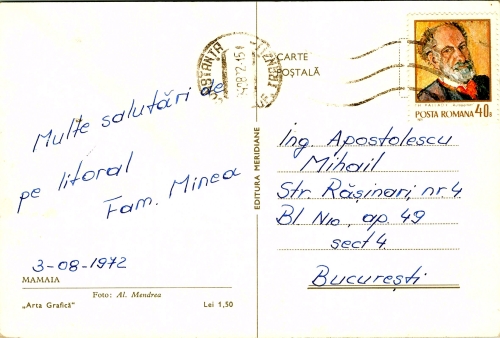 Multe salutări de
pe litoral
Fam. Minea
3-08-1972
MAMAIA
Foto: Al. Mendrea
„Arta Grafică”
Lei 1,50
EDITURA MERIDIANE
CARTE
POȘTALĂ
POSTA ROMANA 40B
Ing. Apostolescu
Mihail
Str. Rășinari, nr. 4
Bl. N10, ap. 49
sect 4.
București